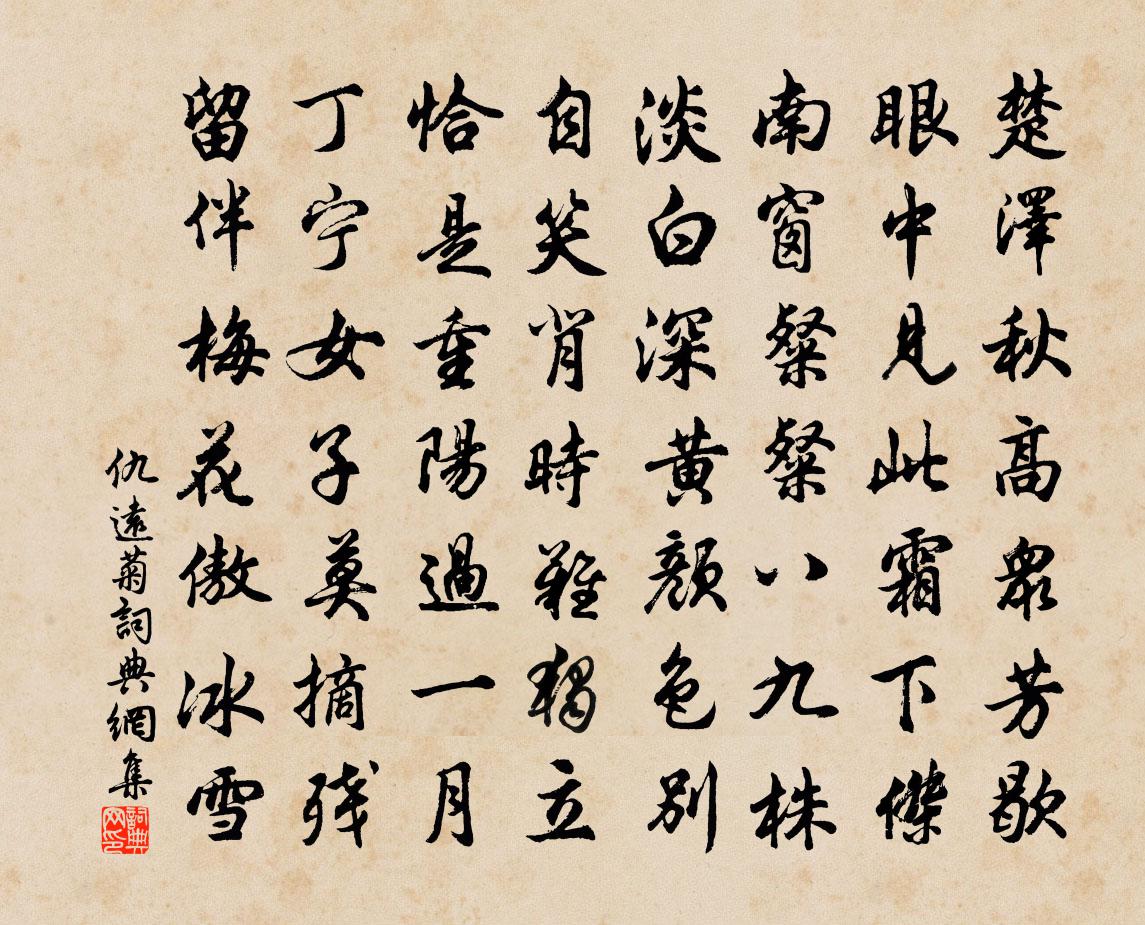 楚澤秋高眾芳歇
眼中見此霜下傑
南窗粲粲八九株
淡白深黃顏色別
自笑背時難獨立
恰是重陽過一月
丁宁女子莫摘残
留伴梅花傲冰雪
仇遠菊詞典網集
詞典網印